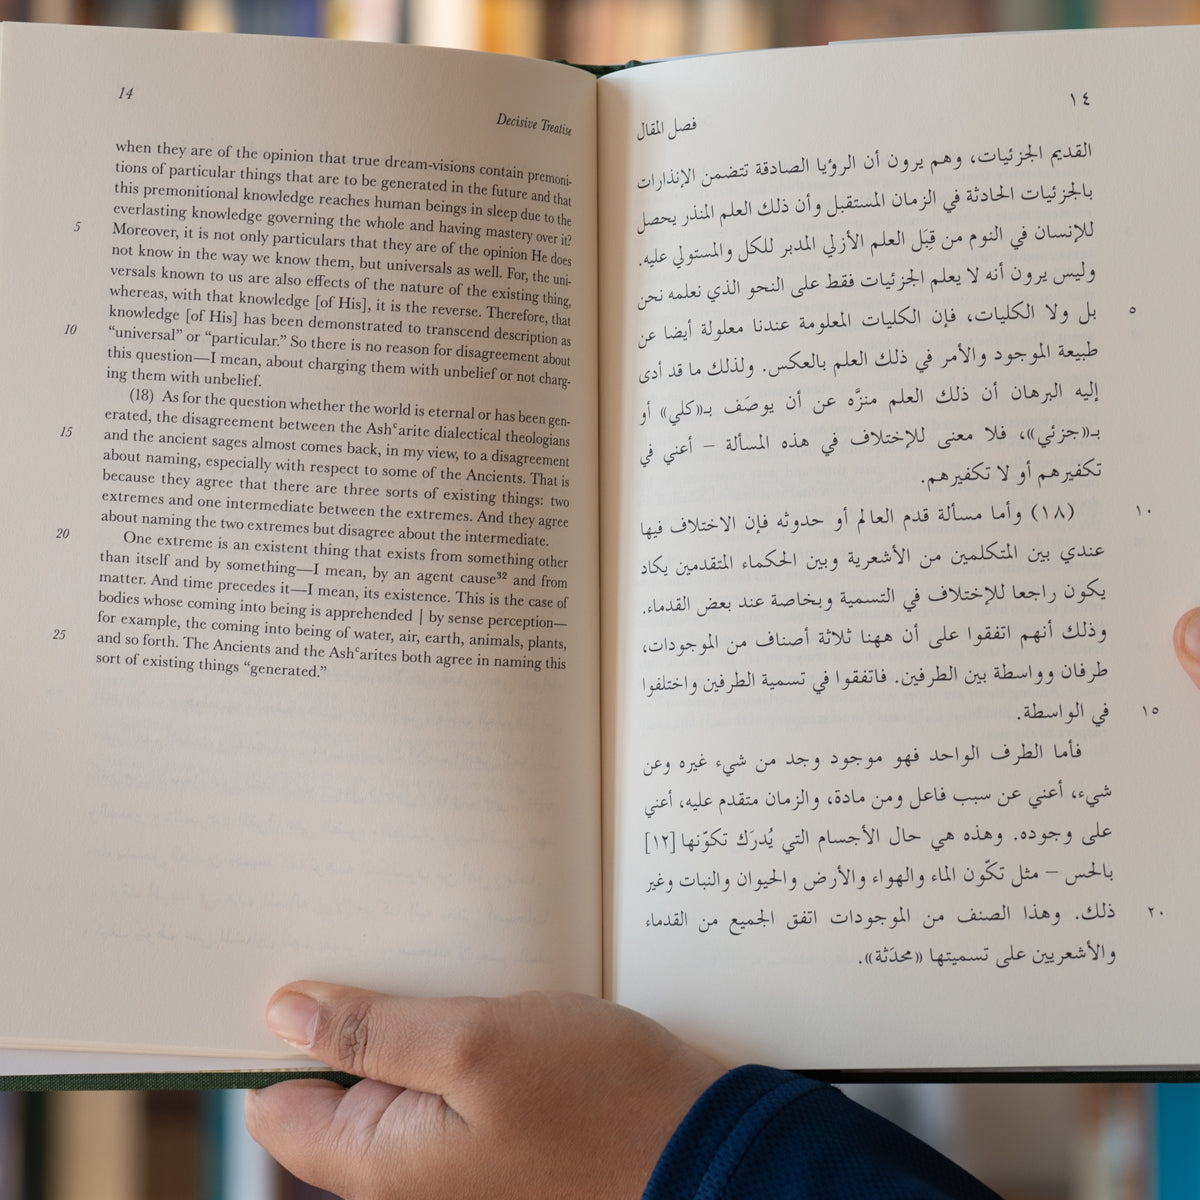 14
Decisive Treatise
when they are of the opinion that true dream-visions contain premoni-
tions of particular things that are to be generated in the future and that
this premonitional knowledge reaches human beings in sleep due to the
everlasting knowledge governing the whole and having mastery over it?
5 Moreover, it is not only particulars that they are of the opinion He does
not know in the way we know them, but universals as well. For, the uni-
versals known to us are also effects of the nature of the existing thing,
whereas, with that knowledge [of His], it is the reverse. Therefore, that
knowledge [of His] has been demonstrated to transcend description as
10 “universal” or “particular.” So there is no reason for disagreement about
this question—I mean, about charging them with unbelief or not charg-
ing them with unbelief.
(18) As for the question whether the world is eternal or has been gen-
erated, the disagreement between the Ashʿarite dialectical theologians
15 and the ancient sages almost comes back, in my view, to a disagreement
about naming, especially with respect to some of the Ancients. That is
because they agree that there are three sorts of existing things: two
extremes and one intermediate between the extremes. And they agree
about naming the two extremes but disagree about the intermediate.
20 One extreme is an existent thing that exists from something other
than itself and by something—I mean, by an agent cause³² and from
matter. And time precedes it—I mean, its existence. This is the case of
bodies whose coming into being is apprehended | by sense perception—
for example, the coming into being of water, air, earth, animals, plants,
25 and so forth. The Ancients and the Ashʿarites both agree in naming this
sort of existing things “generated.”
١٤
فصل المقال
القديم الجزئيات، وهم يرون أن الرؤيا الصادقة تتضمن الإنذارات
بالجزئيات الحادثة في الزمان المستقبل وأن ذلك العلم المنذر يحصل
للإنسان في النوم من قِبَل العلم الأزلي المدبر للكل والمستولي عليه.
وليس يرون أنه لا يعلم الجزئيات فقط على النحو الذي نعلمه نحن
٥ بل ولا الكليات، فإن الكليات المعلومة عندنا معلولة أيضا عن
طبيعة الموجود والأمر في ذلك العلم بالعكس. ولذلك ما قد أدى
إليه البرهان أن ذلك العلم منزَّه عن أن يوصَف بـ«كلي» أو
بـ«جزئي»، فلا معنى للإختلاف في هذه المسألة – أعني في
تكفيرهم أو لا تكفيرهم.
١٠ (١٨) وأما مسألة قدم العالم أو حدوثه فإن الاختلاف فيها
عندي بين المتكلمين من الأشعرية وبين الحكماء المتقدمين يكاد
يكون راجعا للإختلاف في التسمية وبخاصة عند بعض القدماء.
وذلك أنهم اتفقوا على أن ههنا ثلاثة أصناف من الموجودات،
طرفان وواسطة بين الطرفين. فاتفقوا في تسمية الطرفين واختلفوا
١٥ في الواسطة.
فأما الطرف الواحد فهو موجود وجد من شيء غيره وعن
شيء، أعني عن سبب فاعل ومن مادة، والزمان متقدم عليه، أعني
على وجوده. وهذه هي حال الأجسام التي يُدرَك تكوّنها [١٢]
بالحس – مثل تكّون الماء والهواء والأرض والحيوان والنبات وغير
٢٠ ذلك. وهذا الصنف من الموجودات اتفق الجميع من القدماء
والأشعريين على تسميتها «محدَثة».